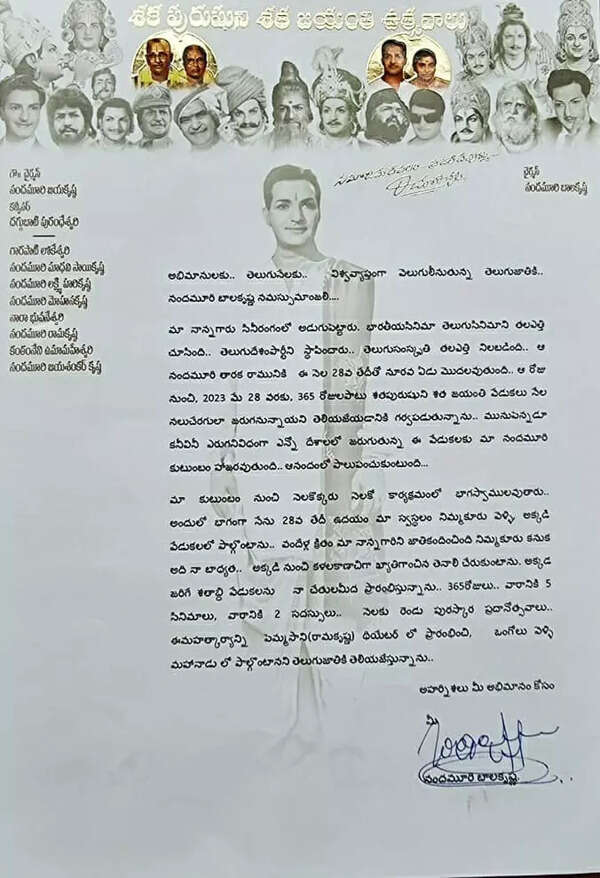 శక పురుషుని శత జయంతి ఉత్సవాలు
గౌః చైర్మన్
నందమూరి జయకృష్ణ
కన్వీనర్
దగ్గుబాటి పురంధేశ్వరి
గారపాటి లోకేశ్వరి
నందమూరి మాధవి సాయికృష్ణ
నందమూరి లక్ష్మి హరికృష్ణ
నందమూరి మోహనకృష్ణ
నారా భువనేశ్వరి
నందమూరి రామకృష్ణ
కంఠంనేని ఉమామహేశ్వరి
నందమూరి జయశంకర్ కృష్ణ
చైర్మన్
నందమూరి బాలకృష్ణ
అభిమానులకు.. తెలుగునేలకు.. విశ్వవ్యాప్తంగా వెలుగులీనుతున్న తెలుగుజాతికి..
నందమూరి బాలకృష్ణ నమస్సుమాంజలి....
మా నాన్నగారు సినీరంగంలో అడుగుపెట్టారు. భారతీయసినిమా తెలుగుసినిమాని తలఎత్తి
చూసింది.. తెలుగుదేశంపార్టీని స్థాపించారు.. తెలుగుసంస్కృతి తలఎత్తి నిలబడింది.. ఆ
నందమూరి తారక రామునికి ఈ నెల 28వ తేదీతో నూరవ ఏడు మొదలవుతుంది.. ఆ రోజు
నుంచి, 2023 మే 28 వరకు, 365 రోజులపాటు శతపురుషుని శత జయంతి వేడుకలు నేల
నలుచేరగులా జరుగనున్నాయని తెలియజేయడానికి గర్వపడుతున్నాను.. మునుపెన్నడూ
కనీవినీ ఎరుగనివిధంగా ఎన్నో దేశాలలో జరుగుతున్న ఈ వేడుకలకు మా నందమూరి
కుటుంబం హాజరవుతుంది.. ఆనందంలో పాలుపంచుకుంటుంది...
మా కుటుంబం నుంచి నెలకొక్కరు నెలకో కార్యక్రమంలో భాగస్వాములవుతారు..
అందులో భాగంగా నేను 28వ తేదీ ఉదయం మా స్వస్థలం నిమ్మకూరు వెళ్ళి, అక్కడి
వేడుకలలో పాల్గొంటాను.. వందేళ్ల క్రితం మా నాన్నగారిని జాతికందించింది నిమ్మకూరు కనుక
అది నా బాధ్యత.. అక్కడి నుంచి కళలకాణాచిగా ఖ్యాతిగాంచిన తెనాలి చేరుకుంటాను. అక్కడ
జరిగే శతాబ్ది వేడుకలను నా చేతులమీద ప్రారంభిస్తున్నాను.. 365రోజులు.. వారానికి 5
సినిమాలు, వారానికి 2 సదస్సులు.. నెలకు రెండు పురస్కార ప్రదానోత్సవాలు..
ఈమహత్కార్యాన్ని పెమ్మసాని(రామకృష్ణ) థియేటర్ లో ప్రారంభించి, ఒంగోలు వెళ్ళి
మహానాడు లో పాల్గొంటానని తెలుగుజాతికి తెలియజేస్తున్నాను..
అహర్నిశలు మీ అభిమానం కోసం
మీ
నందమూరి బాలకృష్ణ